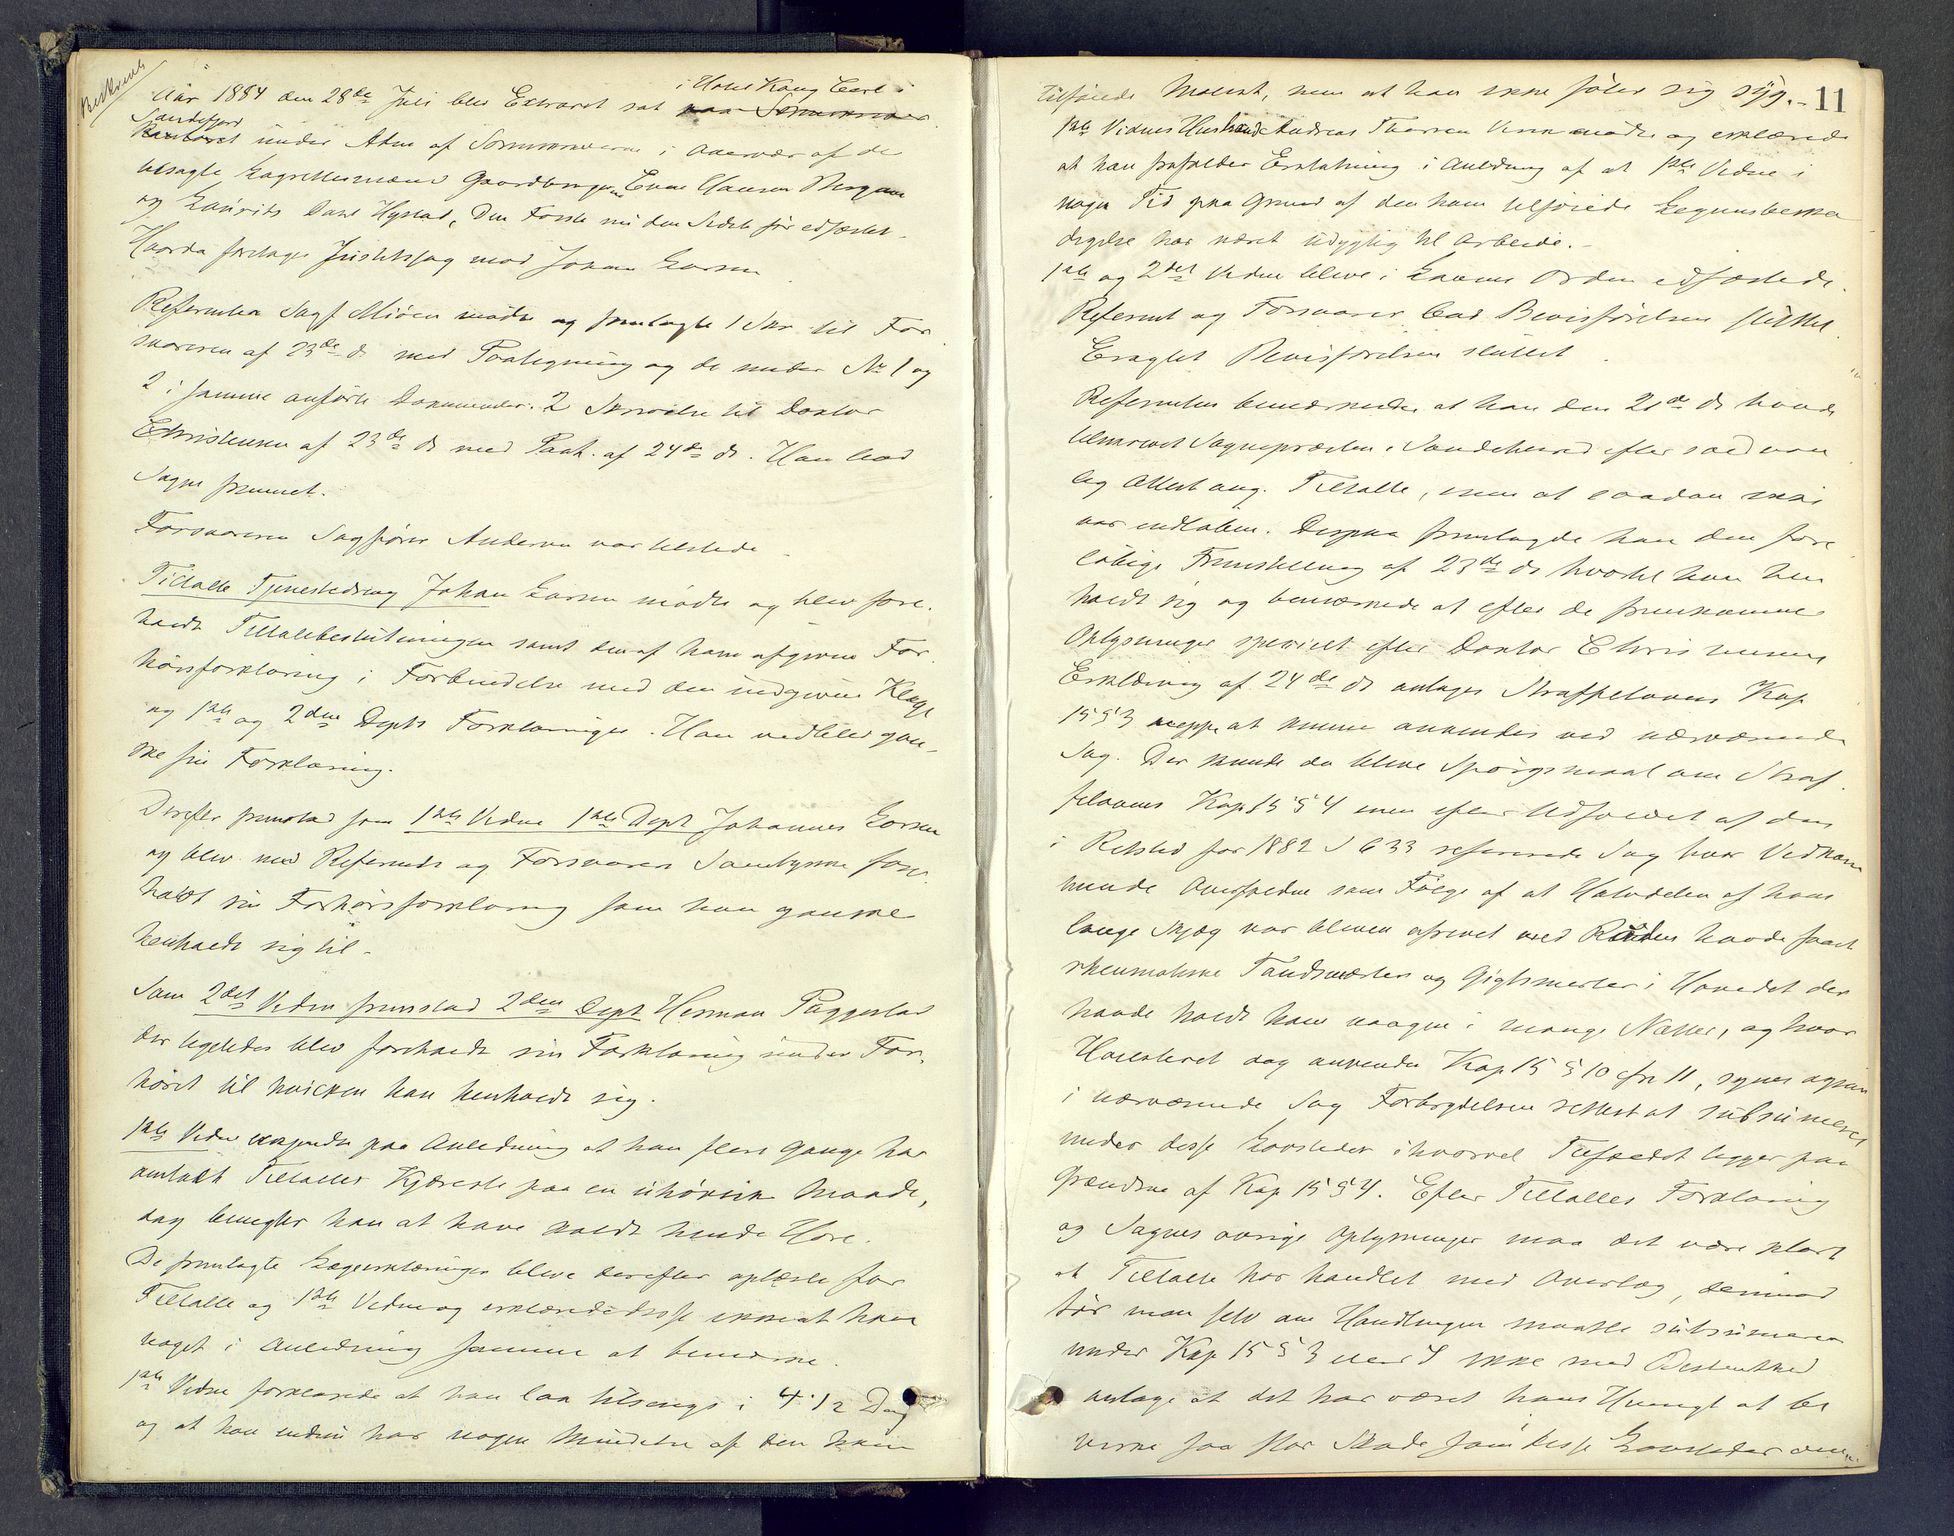 Beskrevet
Aar 1884 den 28de Juli blev Extraret sat i Hotel Kong Carl i
Sandefjord under Adm af Sorenskriveren i Overvær af de
besagte Lagrettesmænd Gaardbruger Evan Hansen Bergan
og Laurits Dahl Hystad, Den Første nu den Sidste før edfæstet.
Hvorda foretages Justitssag mod Johan Larsen
Referenten Sagf Miøen mødte og fremlagte 1 Skr. til For
svareren af 23de ds med Paategning og de under No 1 og
2 i samme anførte Dokumenter. 2 Skrivelse til Doktor
Christensen af 23de ds med Paat. af 24de ds. Han bad
Sagen fremmet.
Forsvareren Sagfører Andersen var tilstede.
Tiltalte Tjenestedreng Johan Larsen mødte og blev fore
holdt Tiltalebeslutningen samt den af ham afgivne For
hørsforklaring i Forbindelse med den indgivne Klage
og 1ste og 2den Depts Forklaringer. Han vedblev gan-
ske sin Forklaring.
Derefter fremstod som 1ste Vidne 1ste Dept Johannes Larsen
og blev med Referents og Forsvarers Samtykke fore
holdt sin Forhørsforklaring som han ganske
henholdt sig til.
Som 2det Vidne fremstod 2den Dept Herman Puggerstad
der ligeledes blev foreholdt sin Forklaring under For-
høret til hvilken han henholdt sig.
1ste Vidne vedgaar paa Anledning at han flere Gange har
omtalt Tiltaltes Kjæreste paa en uhøvisk Maade,
dog benegter han at have kaldt hende Hore.
De fremlagte Lægeerklæringer bleve derefter oplæste for
Tiltalte og 1ste Vidne og erklærede disse ikke at have
noget i Anledning samme at bemærke.
1ste Vidne forklarede at han laa tilsengs i 4 1/2 Dag
og at han endnu har nogen Mindelse af den ham
11
tilføiede Molest, men at han ikke føler sig syg.-
1ste Vidnes Husbonde Andreas Thorsen Virik mødte og erklærede
at han frafalder Erstatning i Anledning af at 1ste Vidne i
nogen Tid paa Grund af den ham tilføiede Legemsbeska
digelse har været udygtig til Arbeide.-
1ste og 2det Vidne bleve i Lovens Orden edfæstede.
Referent og Forsvarer bad Bevisførelsen sluttet.
Eragtet Bevisførelsen sluttet.
Referenten bemærkede at han den 21de ds havde
tilskrevet Sognepræsten i Sandeherred efter sædvan
lig Attest ang. Tiltalte, men at saadan ikke
var indløben. Derpaa fremlagde han den fore
løbige Fremstilling af 23de ds hvortil han hen
holdt sig og bemærkede at efter de fremkomne
Oplysninger specielt efter Doktor Christensens
Erklæring af 24de ds antages Straffelovens Kap
15 § 3 neppe at kunne anvendes ved nærværende
Sag. Der kunde da blive Spørgsmaal om Straf
felovens Kap 15 § 4 men efter Udfaldet af den
i Retstid for 1882 S 633 refererede Sag hvor Vedkom
mende Overfaldne som Følge af at Halvdelen af hans
lange Skjæg var bleven afrevet med Roden havde faaet
rheumatiske Tandsmerter og Gigtsmerter i Hovedet der
havde holdt ham vaagen i mange Nætter, og hvor
Høiesteret dog anvendte Kap 15 § 10 cfr 11, synes ogsaa
i nærværende Sag Forbrydelsen rettest at subsumeres
under disse Lovsteder ihvorvel Tilfældet ligger paa
Grændsen af Kap 15 § 4. Efter Tiltaltes Forklaring
og Sagens øvrige Oplysninger maa det være klart
at Tiltalte har handlet med Overlæg, deimod
tør man selv om Handlingen maatte subsumeres
under Kap 15 § 3 eller 4 ikke med Bestemthed
antage at det har været hans Hensigt at be
virke saa stor Skade som disse Lovsteder